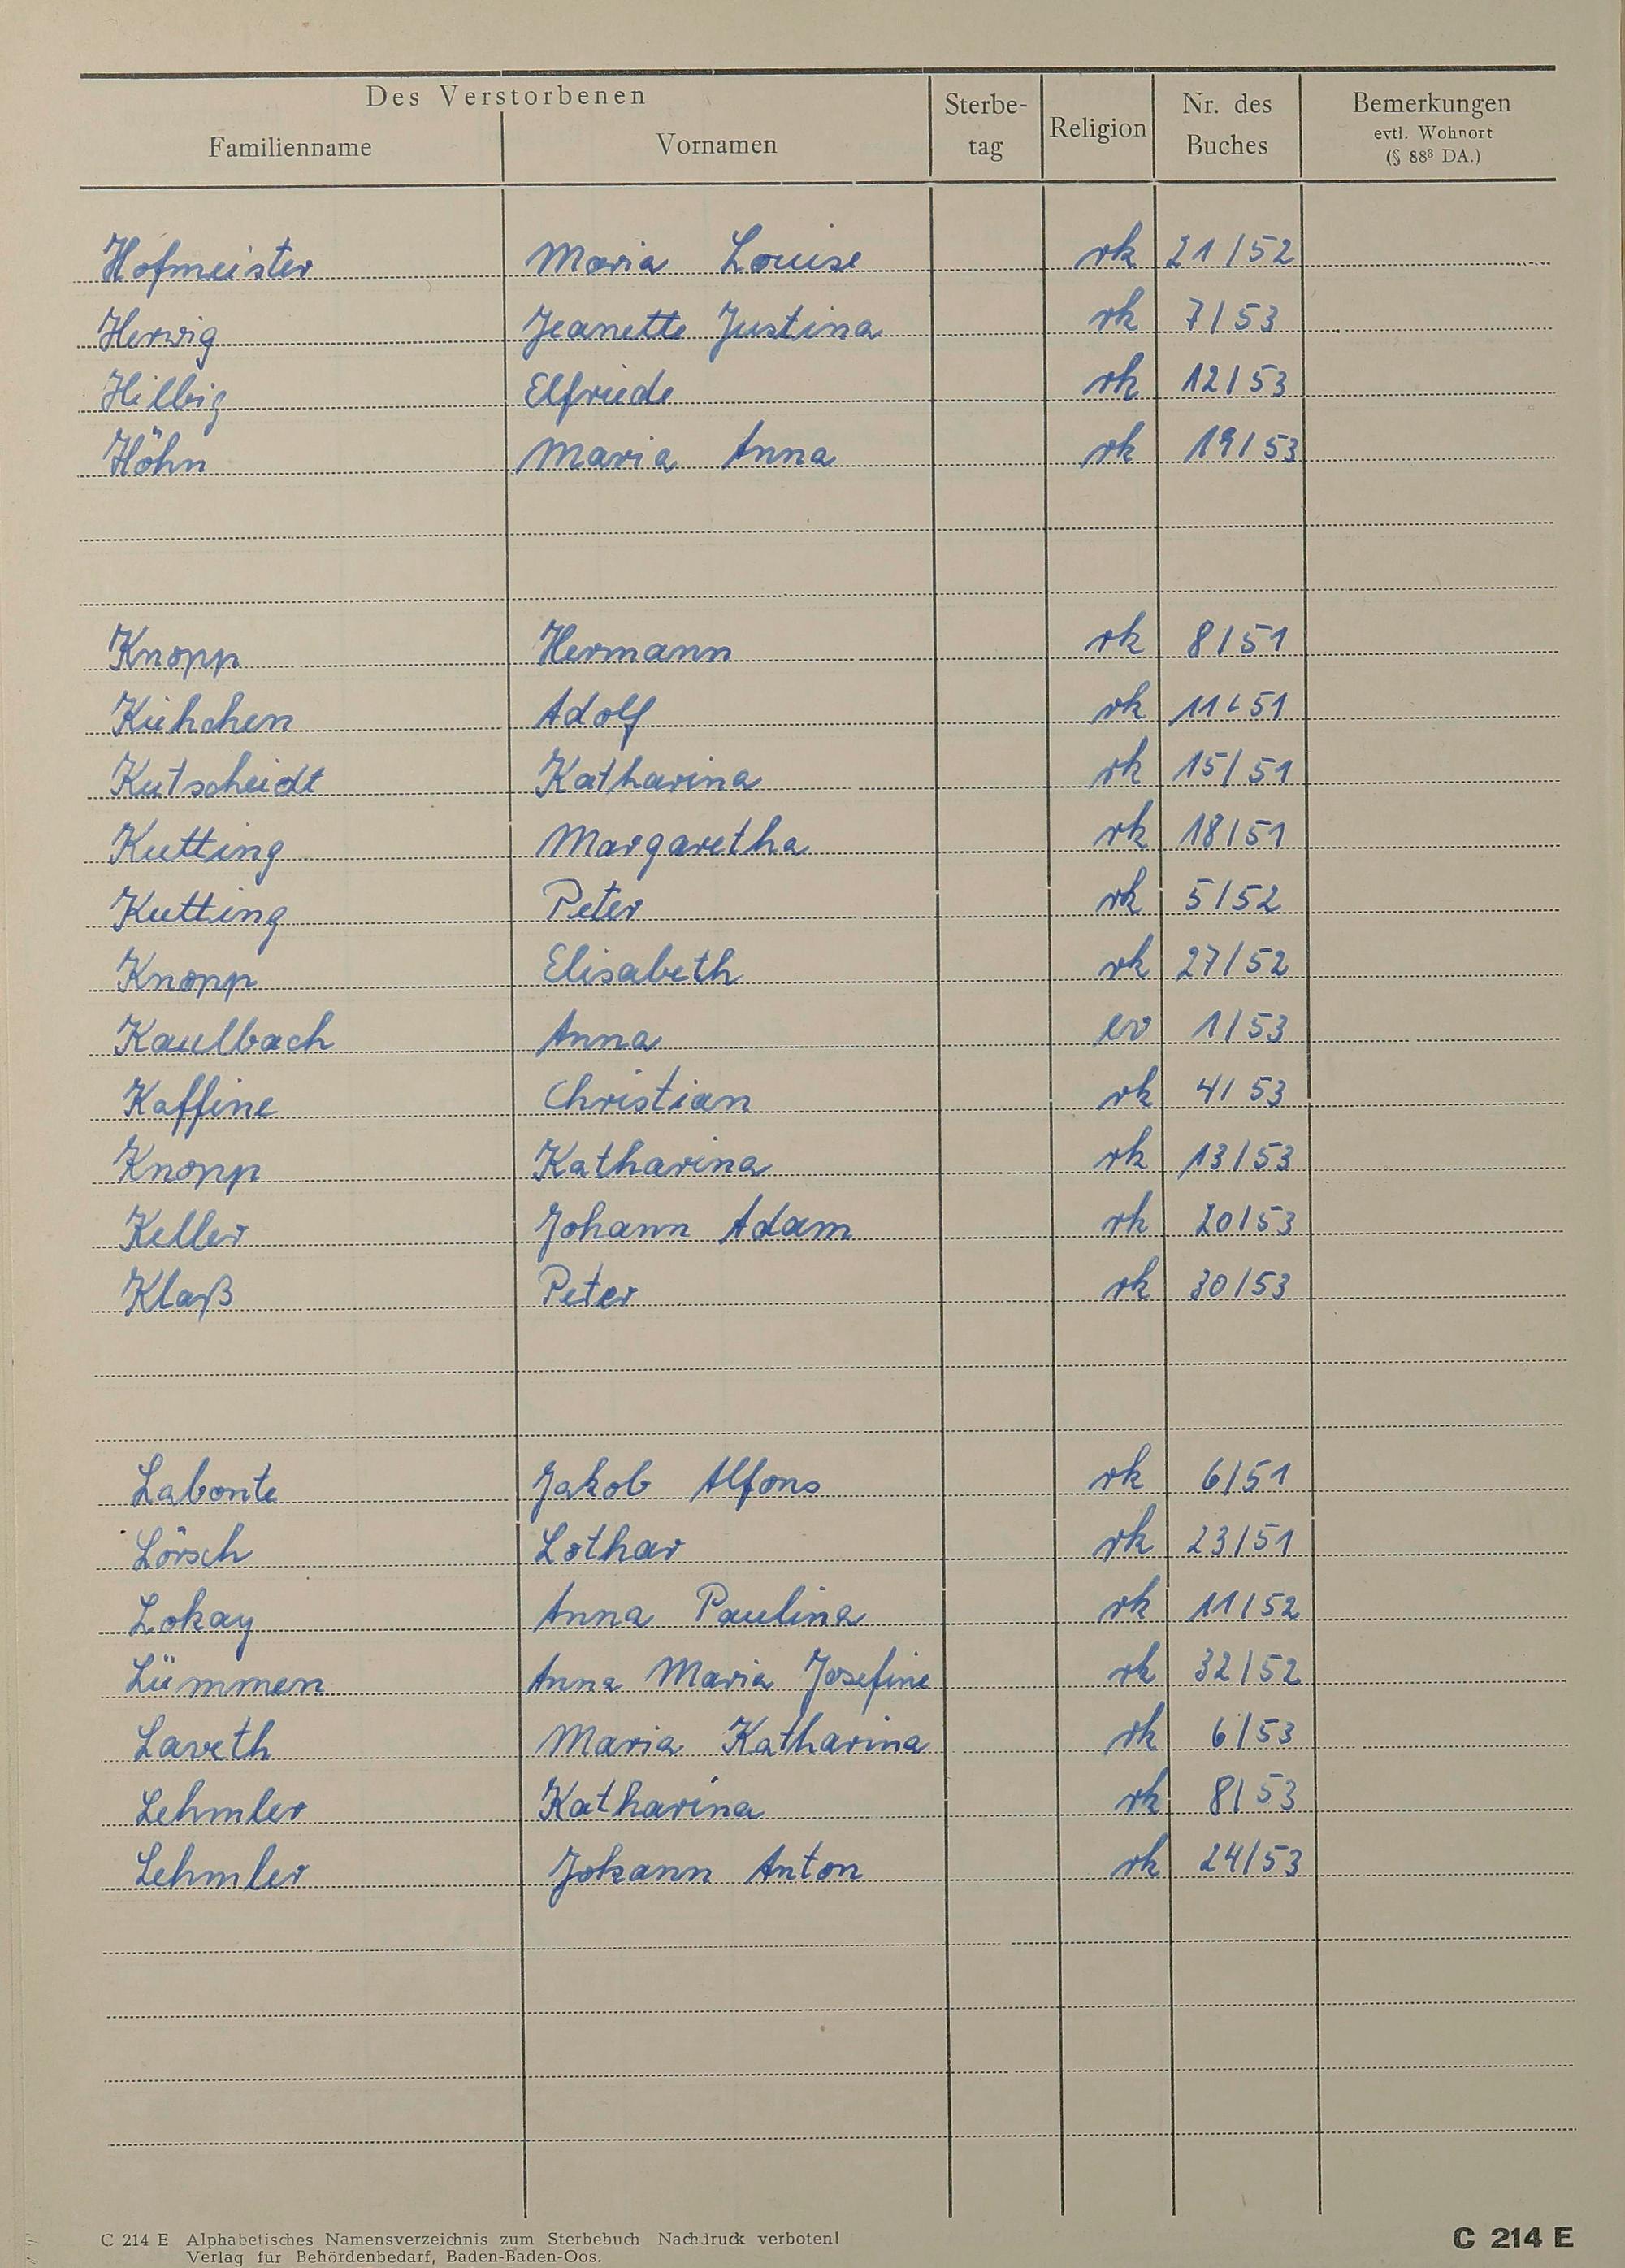 Des Verstorbenen
Familienname Vornamen Sterbe-tag Religion Nr. des Buches Bemerkungen evtl. Wohnort (§ 88³ DA.)
Hofmeister Maria Louise rk 21/52
Herwig Jeanette Justina rk 7/53
Hilbig Elfriede rk 12/53
Höhn Maria Anna rk 19/53
Knopp Hermann rk 8/51
Kühchen Adolf rk 11/51
Kutscheidt Katharina rk 15/51
Kutting Margaretha rk 18/51
Kutting Peter rk 5/52
Knopp Elisabeth rk 27/52
Kaulbach Anna ev 1/53
Kaffine Christian rk 4/53
Knopp Katharina rk 13/53
Keller Johann Adam rk 20/53
Klaß Peter rk 30/53
Labonte Jakob Alfons rk 6/51
Lörsch Lothar rk 23/51
Lokay Anna Paulina rk 11/52
Lümmen Anna Maria Josefine rk 32/52
Laveth Maria Katharina rk 6/53
Lehmler Katharina rk 8/53
Lehmler Johann Anton rk 24/53
C 214 E Alphabetisches Namensverzeichnis zum Sterbebuch Nachdruck verboten! C 214 E
Verlag für Behördenbedarf, Baden-Baden-Oos.